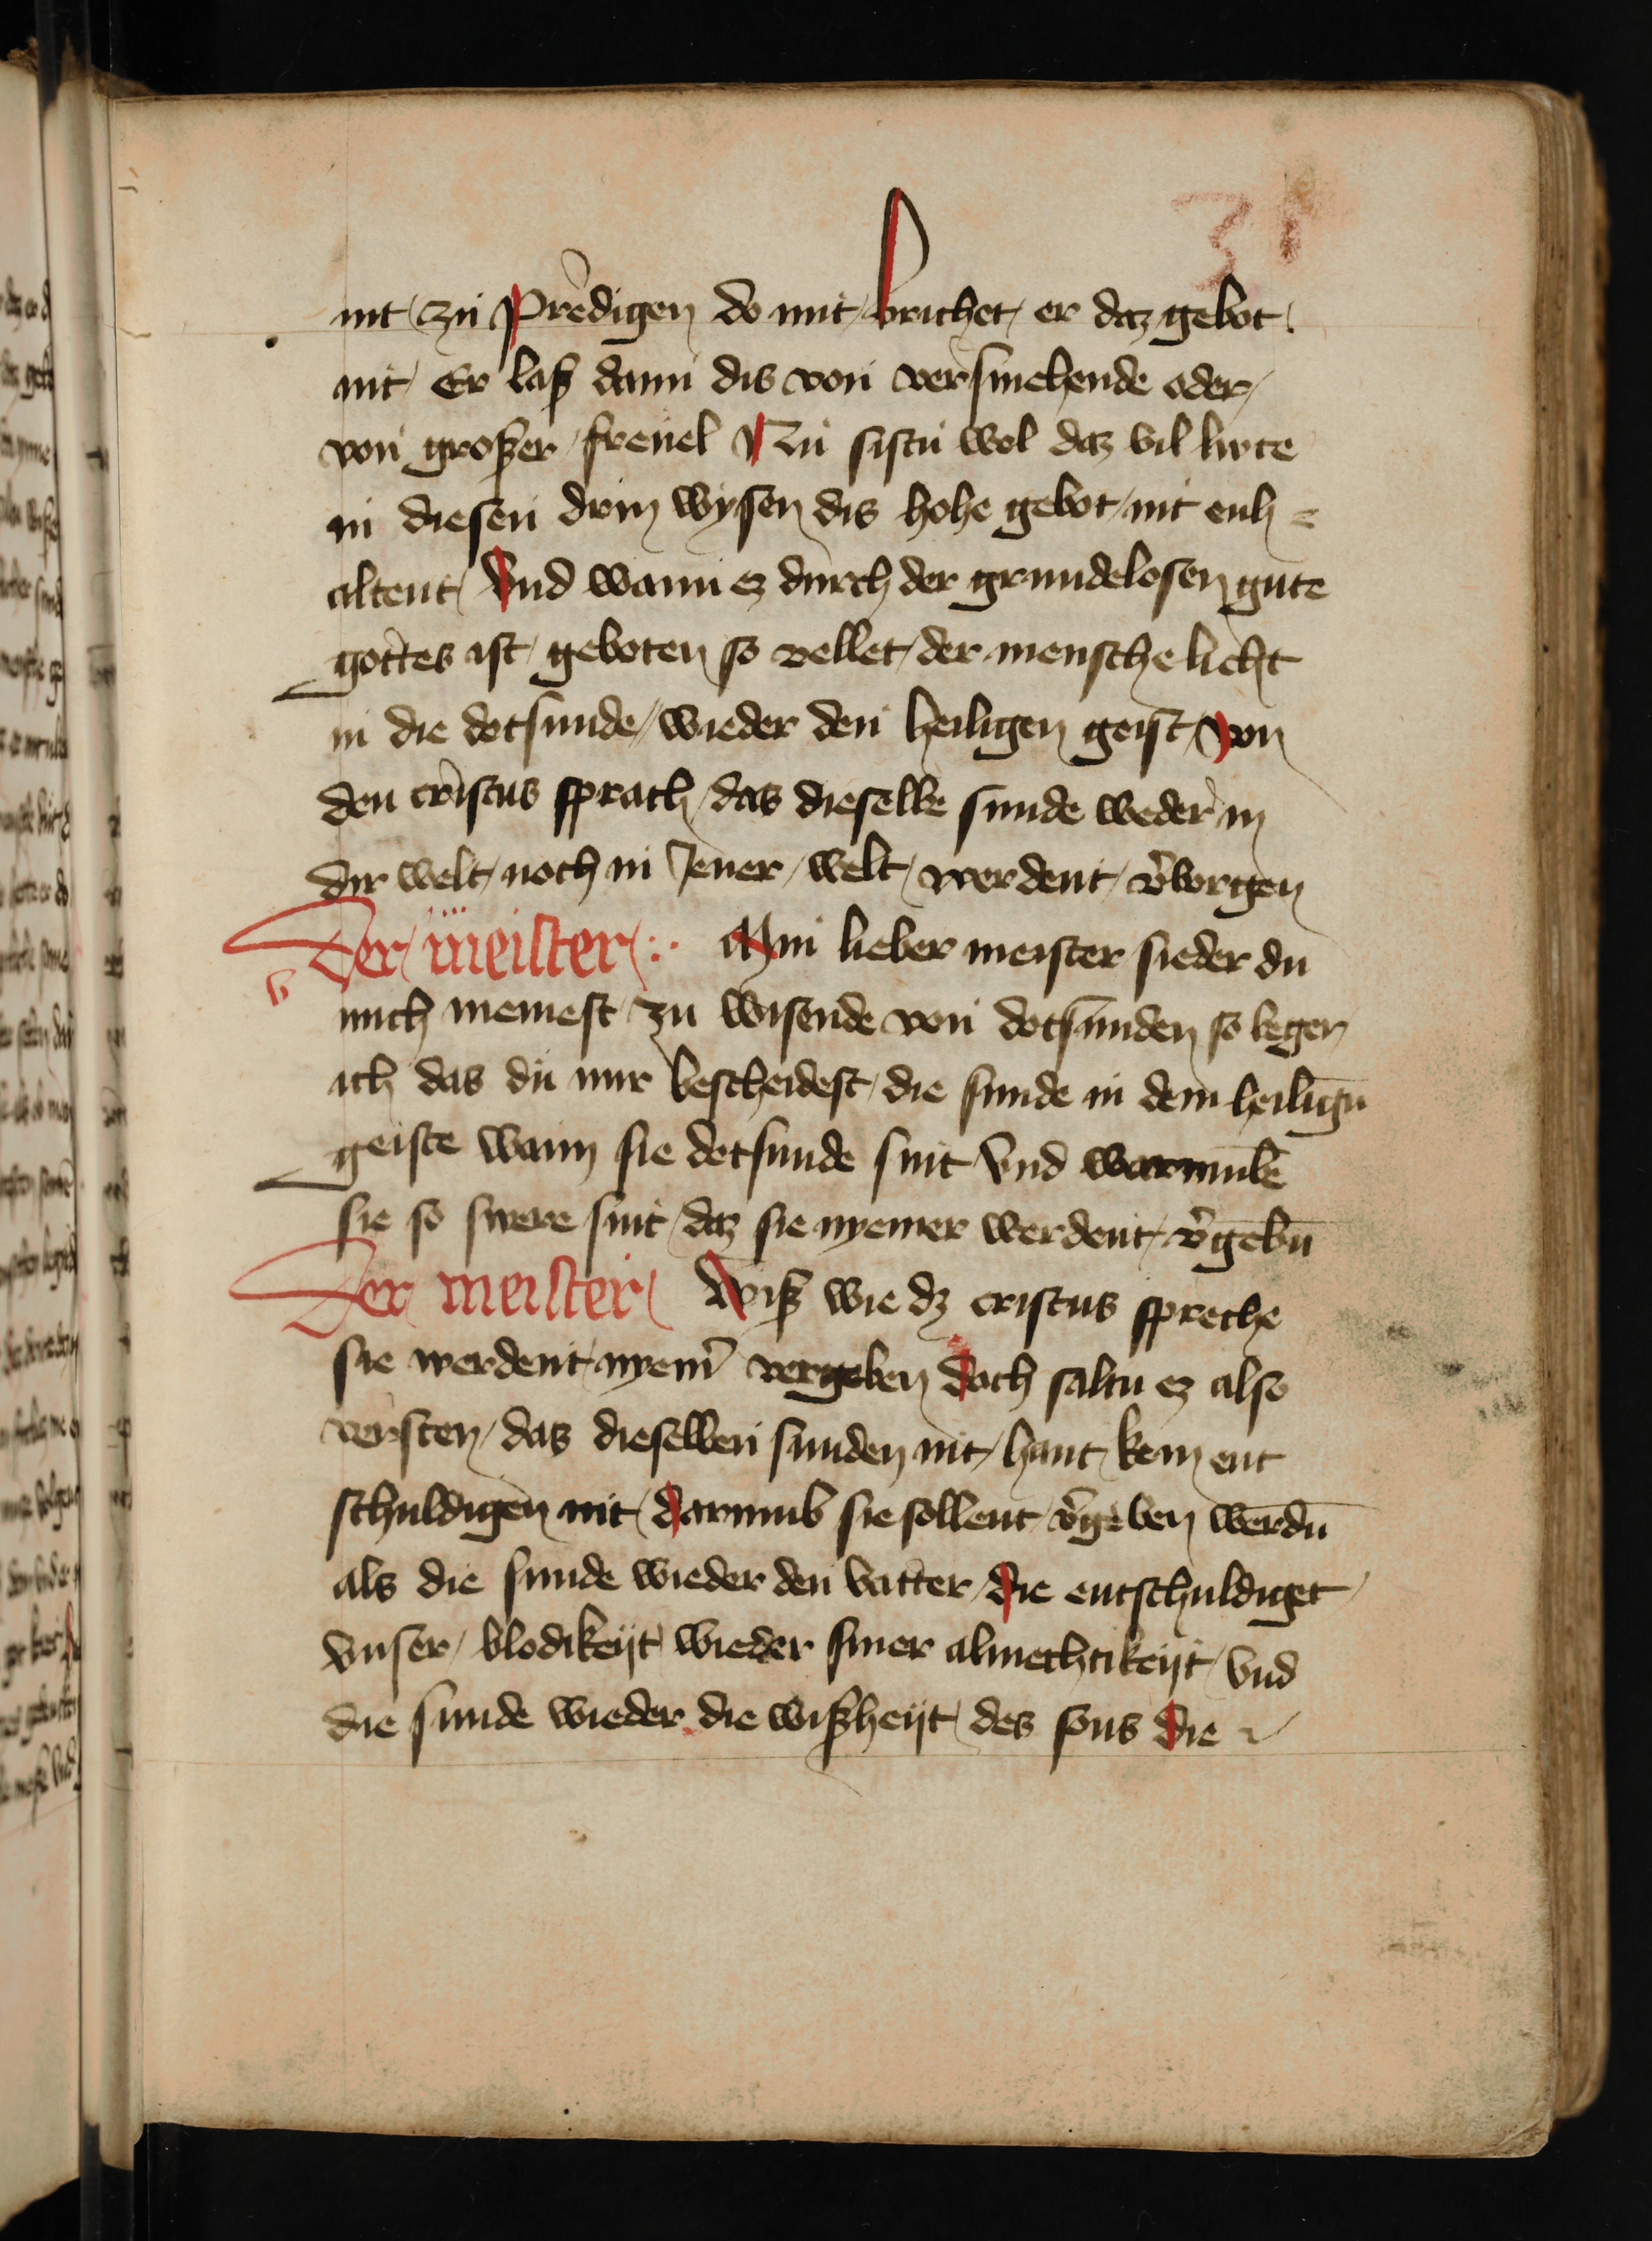 31
nit / zu Predigen do mit / brichet / er daz gebot.
nit / Er laß dann dis von versmehende oder /
von großer / freuel Nu sistu wol daz vil lute
in diesen drin wysen dis hohe gebot / nit enh =
altent / Vnd wann ez durch der grundelosen gute
gottes ist / geboten so vellet / der mensche licht
in die dotsunde // wieder den heiligen geist / von
den cristus sprach / das dieselbe sunde weder in
dir welt / noch in Jener / welt / werdent / v̉borgen
Der / meister / :· Min lieber meister sieder du
mich meinest / zu wisende von dotsunden so beger
ich das du mir bescheidest / die sunde in dem heilign̄
geiste wann sie dotsunde sint Vnd warumbe
sie so swere sint / daz sie nyemer werdent / v̉gebn̄
Der meister / Wiß wie dz cristus spreche
sie werdent / nyem̉ vergeben doch saltu ez also
versten / das dieselben sunden nit / hant kein ent
schuldigen nit / darumb sie sollent / v̉geben werdn̄
als die sunde wieder den vatter / die entschuldiget /
Vnser / blodikeÿt wieder siner almechtikeÿt / Vnd
die sunde wieder die wißheÿt / des sons die